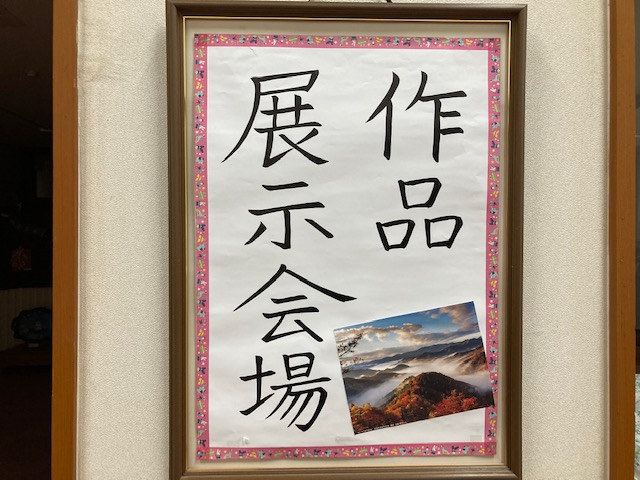 作品
展示会場